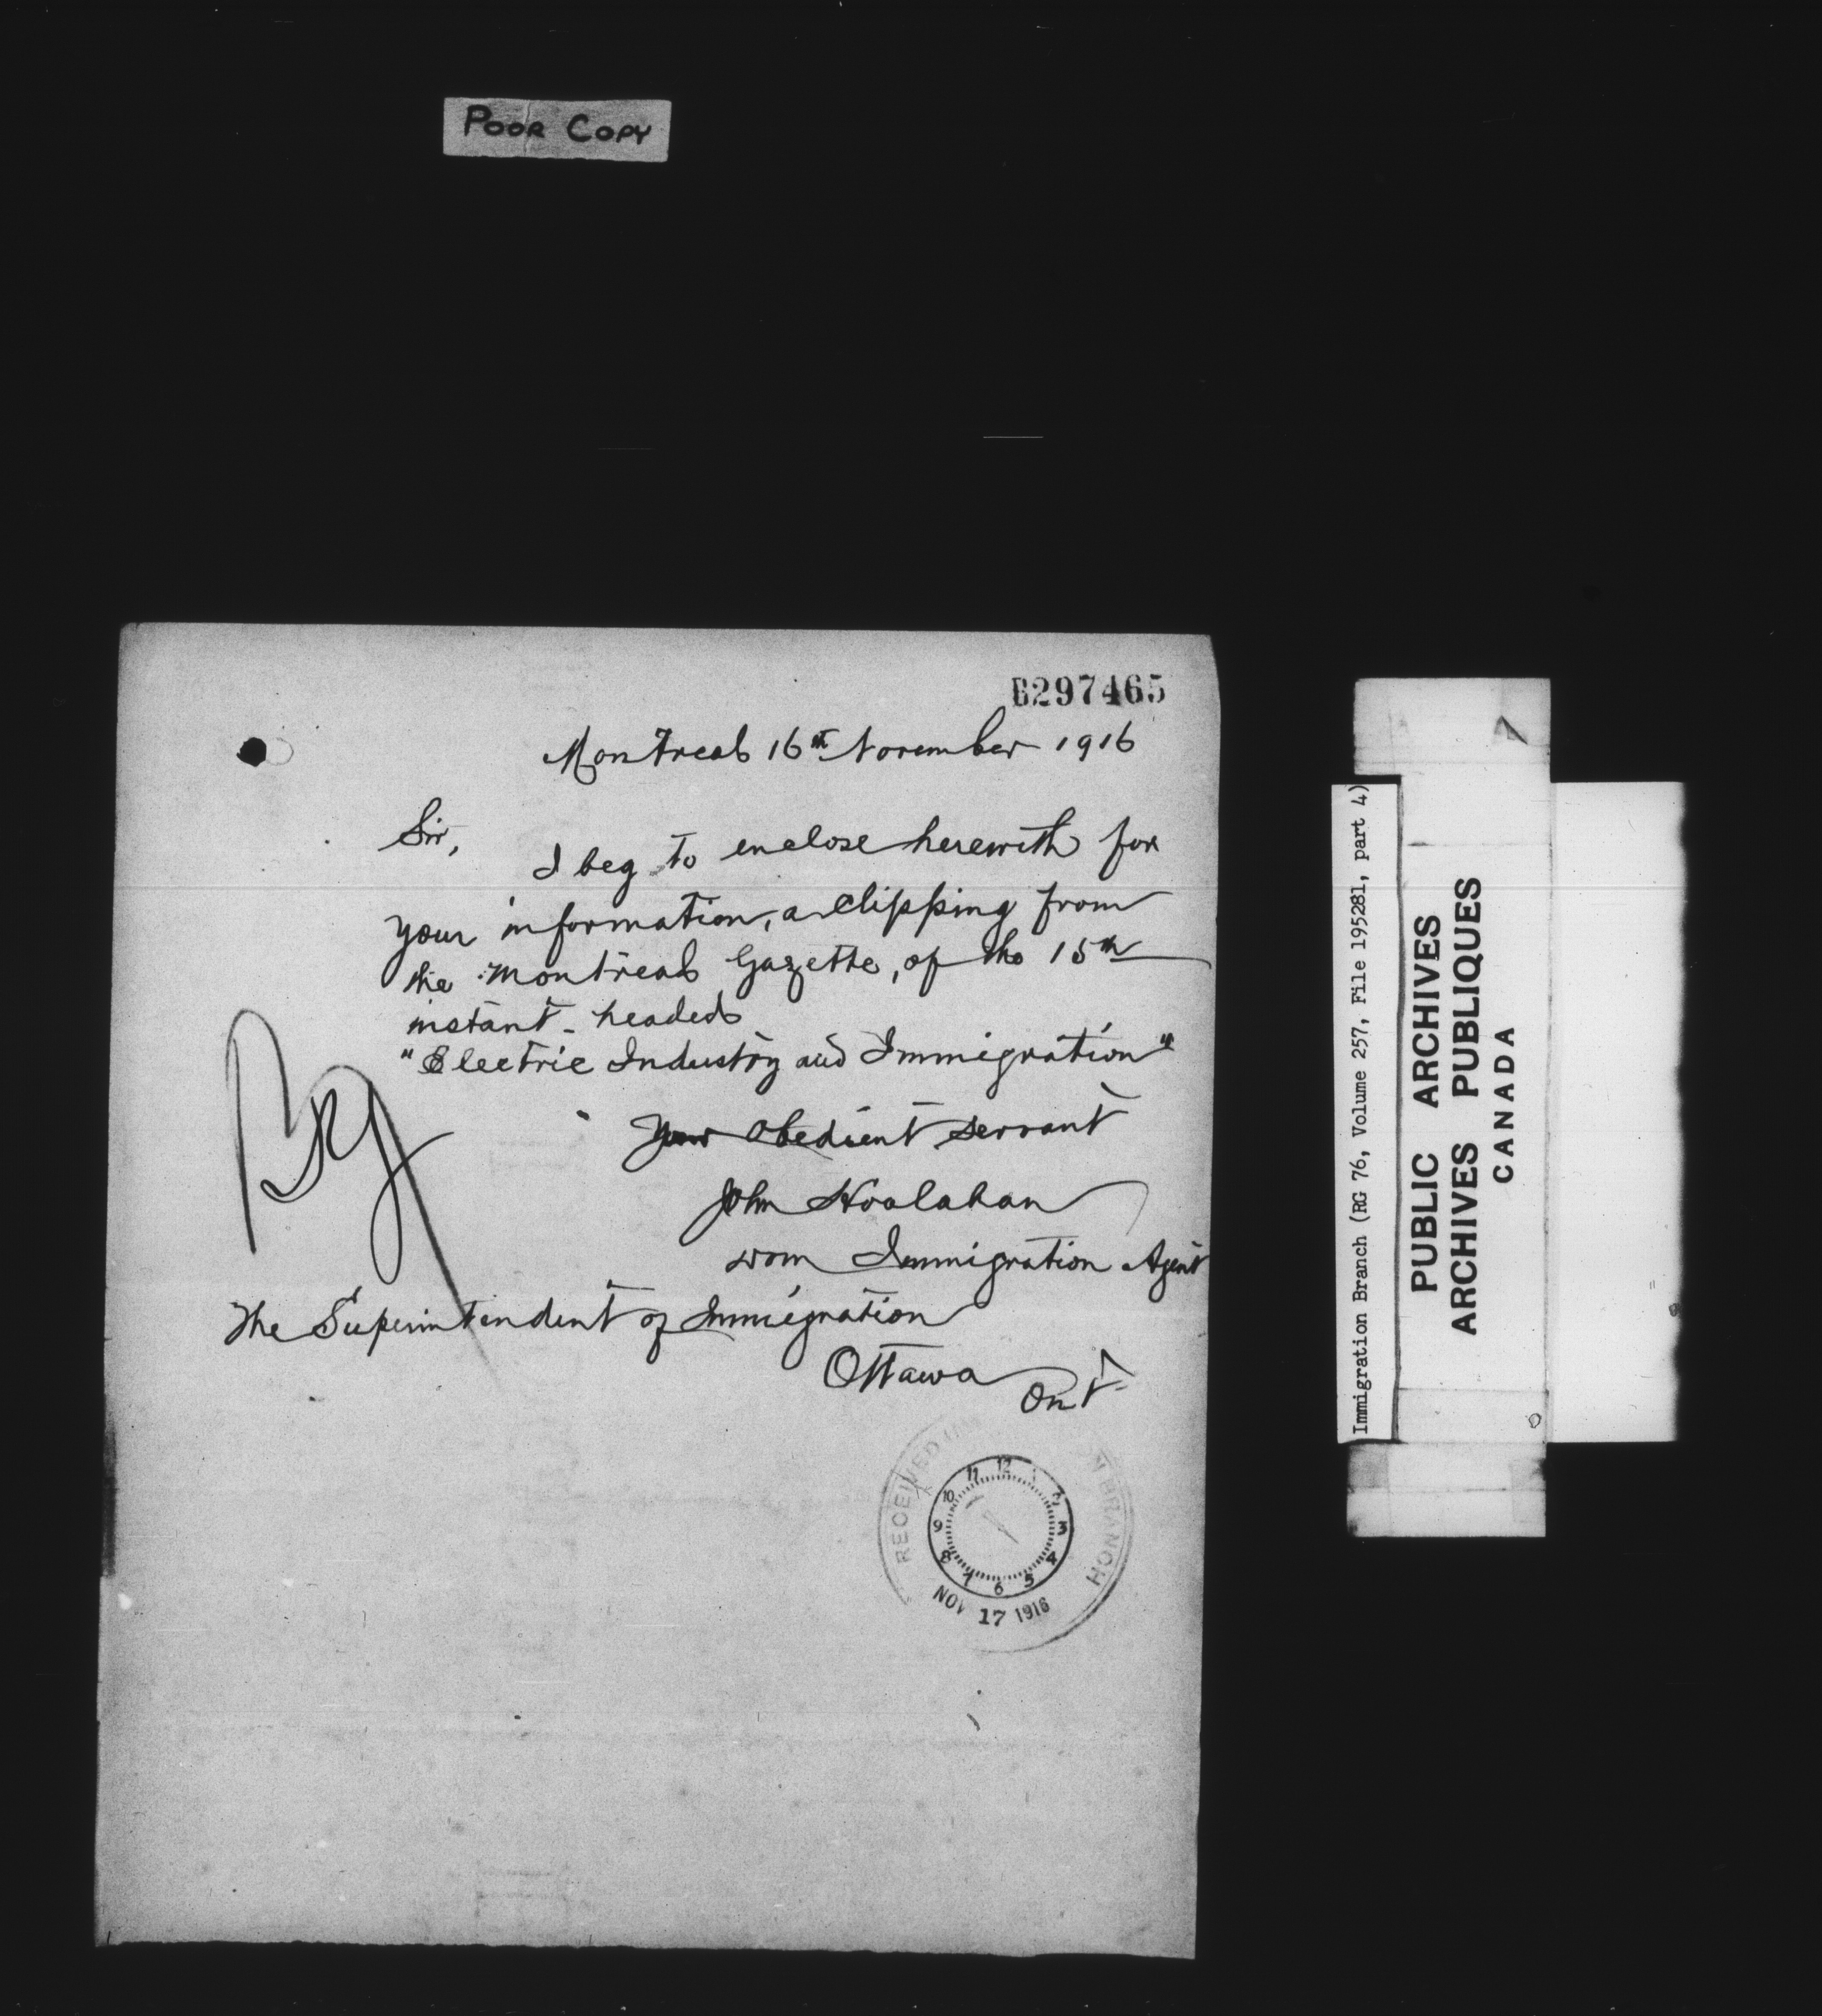 POOR COPY
B297465
Montreal 16th November 1916
Sir,
I beg to enclose herewith for
your information, a clipping from
the Montreal Gazette, of the 15th
instant - headed
"Electric Industry and Immigration"
Your Obedient Servant
John Hoolahan
Dom Immigration Agent
The Superintendent of Immigration
Ottawa
Ont
RECEIVED
N BRANCH
12
11
10
9
8
7
6
5
4
3
2
NOV 17 1916
Immigration Branch (RG 76, Volume 257, File 195281, part 4)
PUBLIC ARCHIVES
ARCHIVES PUBLIQUES
CANADA